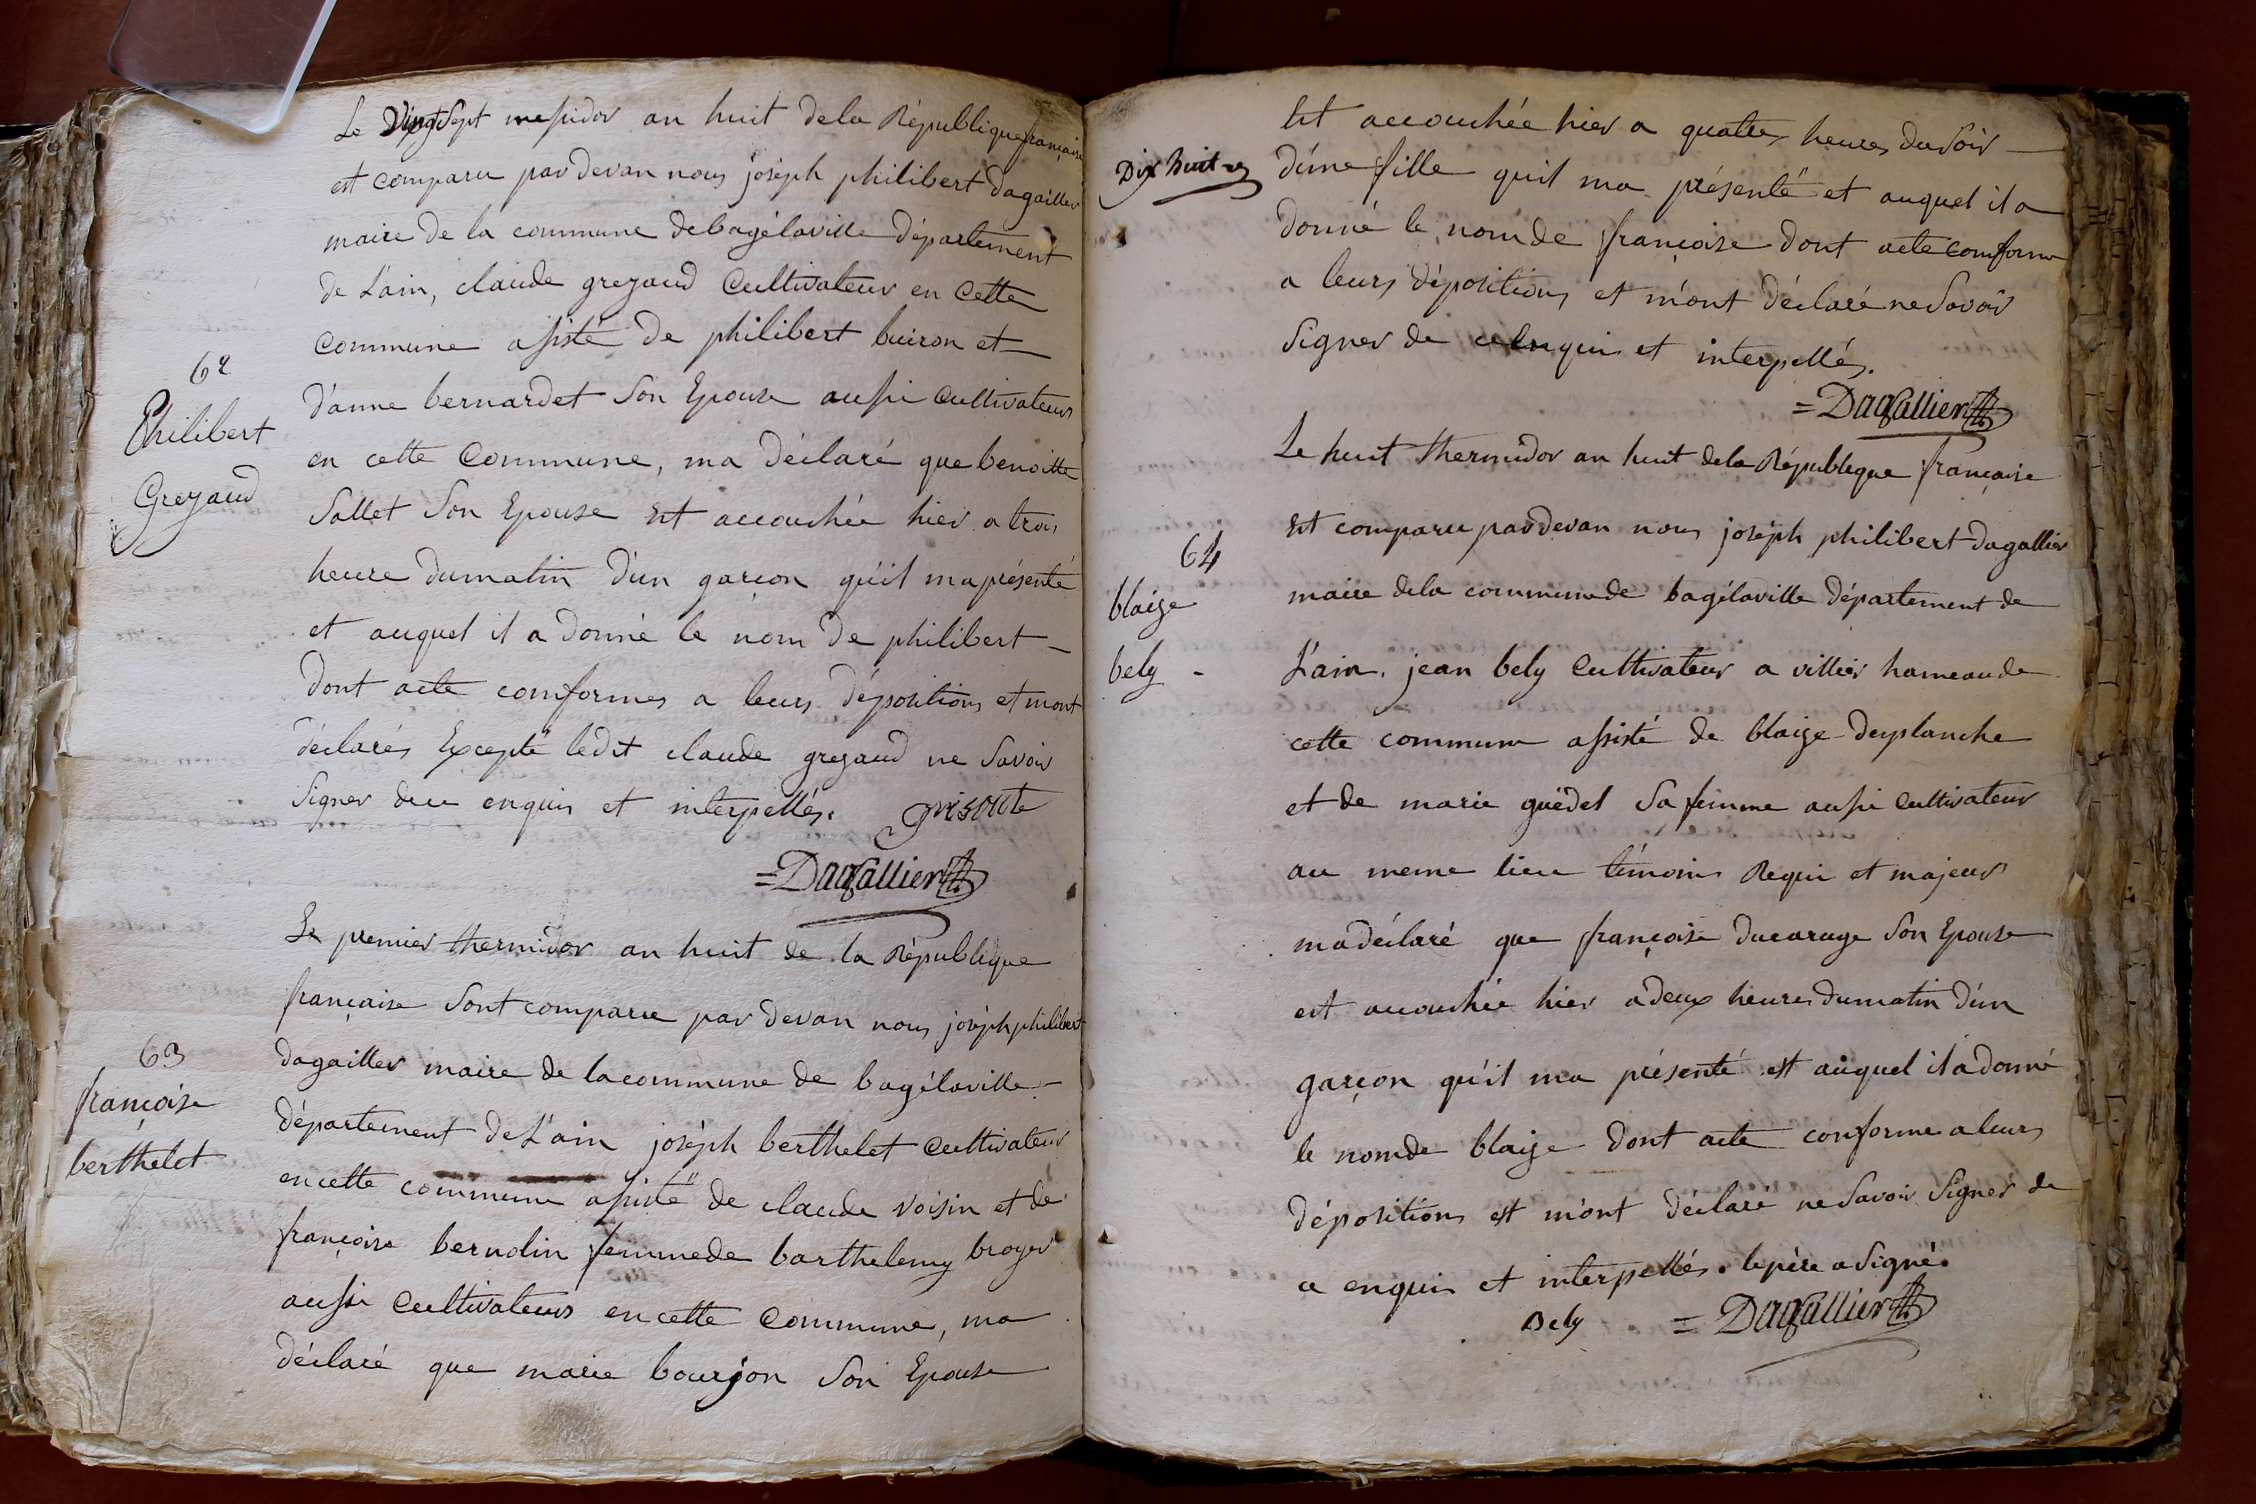 Le Vingt Sept messidor an huit dela République française
est comparu par devan nous joséph philibert Dagaillier
maire de la commune debagélaville Département
de L'ain, claude greyaud Cultivateur en Cette
Commune assisté De philibert buiron et
62
Philibert
Greyaud
D'anne bernardet Son Epouse aussi Cultivateurs
en cette Commune, ma déclaré que benoitte
Sallet Son Epouse Est accouchée hier a trois
heure dumatin D'un garcon qu'il ma présenté
et auquel il a Donné le nom De philibert
Dont acte comformes a leurs dépositions et mont
déclarés Excepté ledit claude greyaud ne Savoir
Signer de ce enquis et interpellés.
=Dagallier
Le premier thermidor an huit de la République
française Sont comparu par devan nous joséph philibert
63
françoise
berthelet
dagaillier maire de lacommune de bagélaville
département de L'ain joséph berthelet Cultivateur
encette commune assisté de claude Voisin et de
françoise bernolin femmede barthelemy broyer
aussi Cultivateurs encette Commune, ma
déclaré que marie bourjon Son Epouse
Est accouchée hier a quatres heures dusoir
Dix huit
D'une fille quil ma présenté et auquel il a
Donné le nomde françoise Dont acte comforme
a leurs dépositions et m'ont déclaré ne Savoir
Signer de ce enquis et interpellés.
=Dagallier
Le huit thermidor an huit dela République française
Est comparu pardevan nous joséph philibert dagallier
64
blaize
bely -
maire dela commune de bagélaville Département de
L'ain. jean bely Cultivateur a villier hameau de
cette commune assisté de blaize deplanche
et de marie guédel Sa femme aussi Cultivateur
au meme lieu témoins Requi et majeur
ma déclaré que françoise ducarage Son Epouse
est accouchée hier a deux heures dumatin D'un
garçon qu'il ma présenté est auquel il a donné
le nomde blaize Dont acte conforme a leurs
dépositions est m'ont déclaré ne Savoir Signer de
ce enquis et interpellés. le père a Signé.
Bely = Dagallier